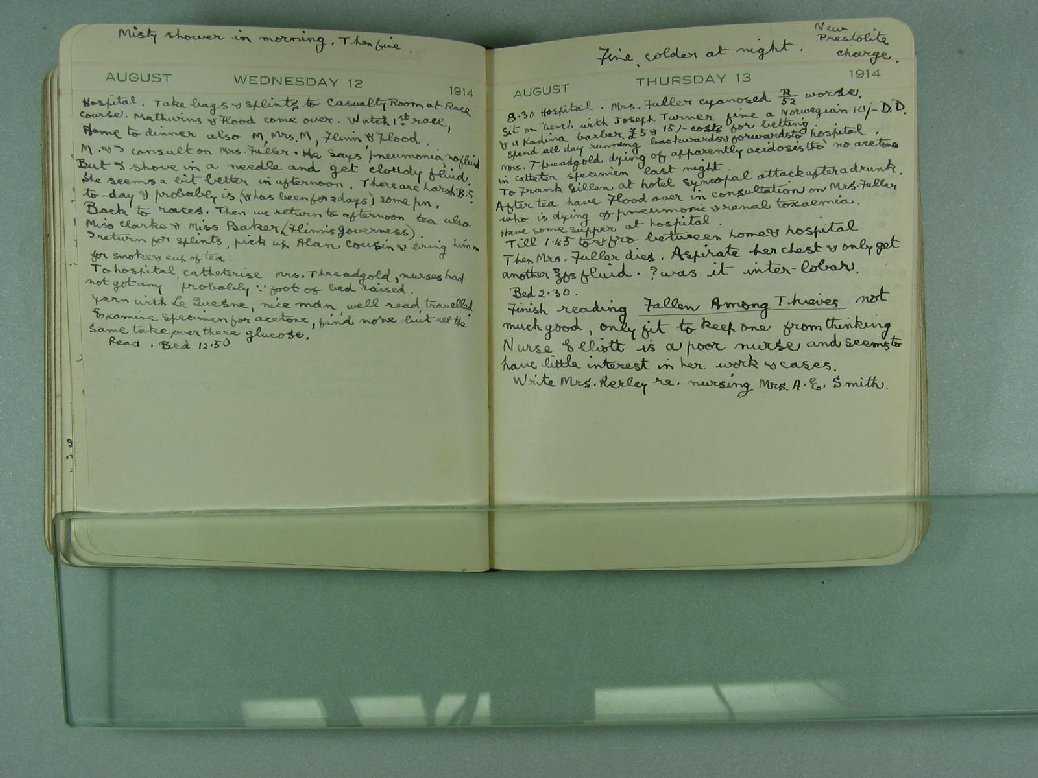 Misty shower in morning. Then fine.
AUGUST WEDNESDAY 12 1914
Hospital. Take bags & splints to Casualty Room at Race
course. Mathurins & Flood come over. Watch 1st race,
Home to dinner also M, Mrs. M, Flinn & Flood.
M. & I consult on Mrs. Fuller. He says pneumonia, no fluid
But I shove in a needle and get cloudy fluid.
She seems a bit better in afternoon. There are harsh B.S.
to-day & probably is (& has been for 2 days) some pn.
Back to races. Then we return to afternoon tea also
Miss Clarke & Miss Baker (Flinn's governess).
I return for splints, pick up Alan Cousin & bring him in
for smoke & cup of tea
To hospital catheterise Mrs. Threadgold, nurses had
not got any probably ∵ foot of bed raised.
Yarn with Le Quesne, nice man, well read, travelled.
Examine specimen for acetone, find none but all the
same take over there glucose.
Read. Bed 12.50
Fine, colder at night.
New
Prestolite
charge.
AUGUST THURSDAY 13 1914
8.30 Hospital. Mrs. Fuller cyanosed R/52 worse.
Sit on bench with Joseph Turner fine a Norwegian 10/- D.D.
& a Kadina barber £5 & 15/- costs for betting.
Spend all day running backwards & forwards to hospital.
Mrs. Threadgold dying of apparently acidosis tho no acetone
in catheter specimen last night.
To Frank Gillen at hotel syncopal attack after a drunk.
After tea have Flood over in consultation on Mrs. Fuller
who is dying of pneumonia & renal toxaemia.
Have some supper at hospital.
Till 1.45 to & fro between home & hospital
Then Mrs. Fuller dies. Aspirate her chest & only get
another fluid. ? was it inter-lobar.
Bed 2.30.
Finish reading Fallen Among Thieves not
much good, only fit to keep one from thinking
Nurse Elliott is a poor nurse and seems to
have little interest in her work & cases.
Write Mrs. Kerley re. nursing Mrs. A. E. Smith.